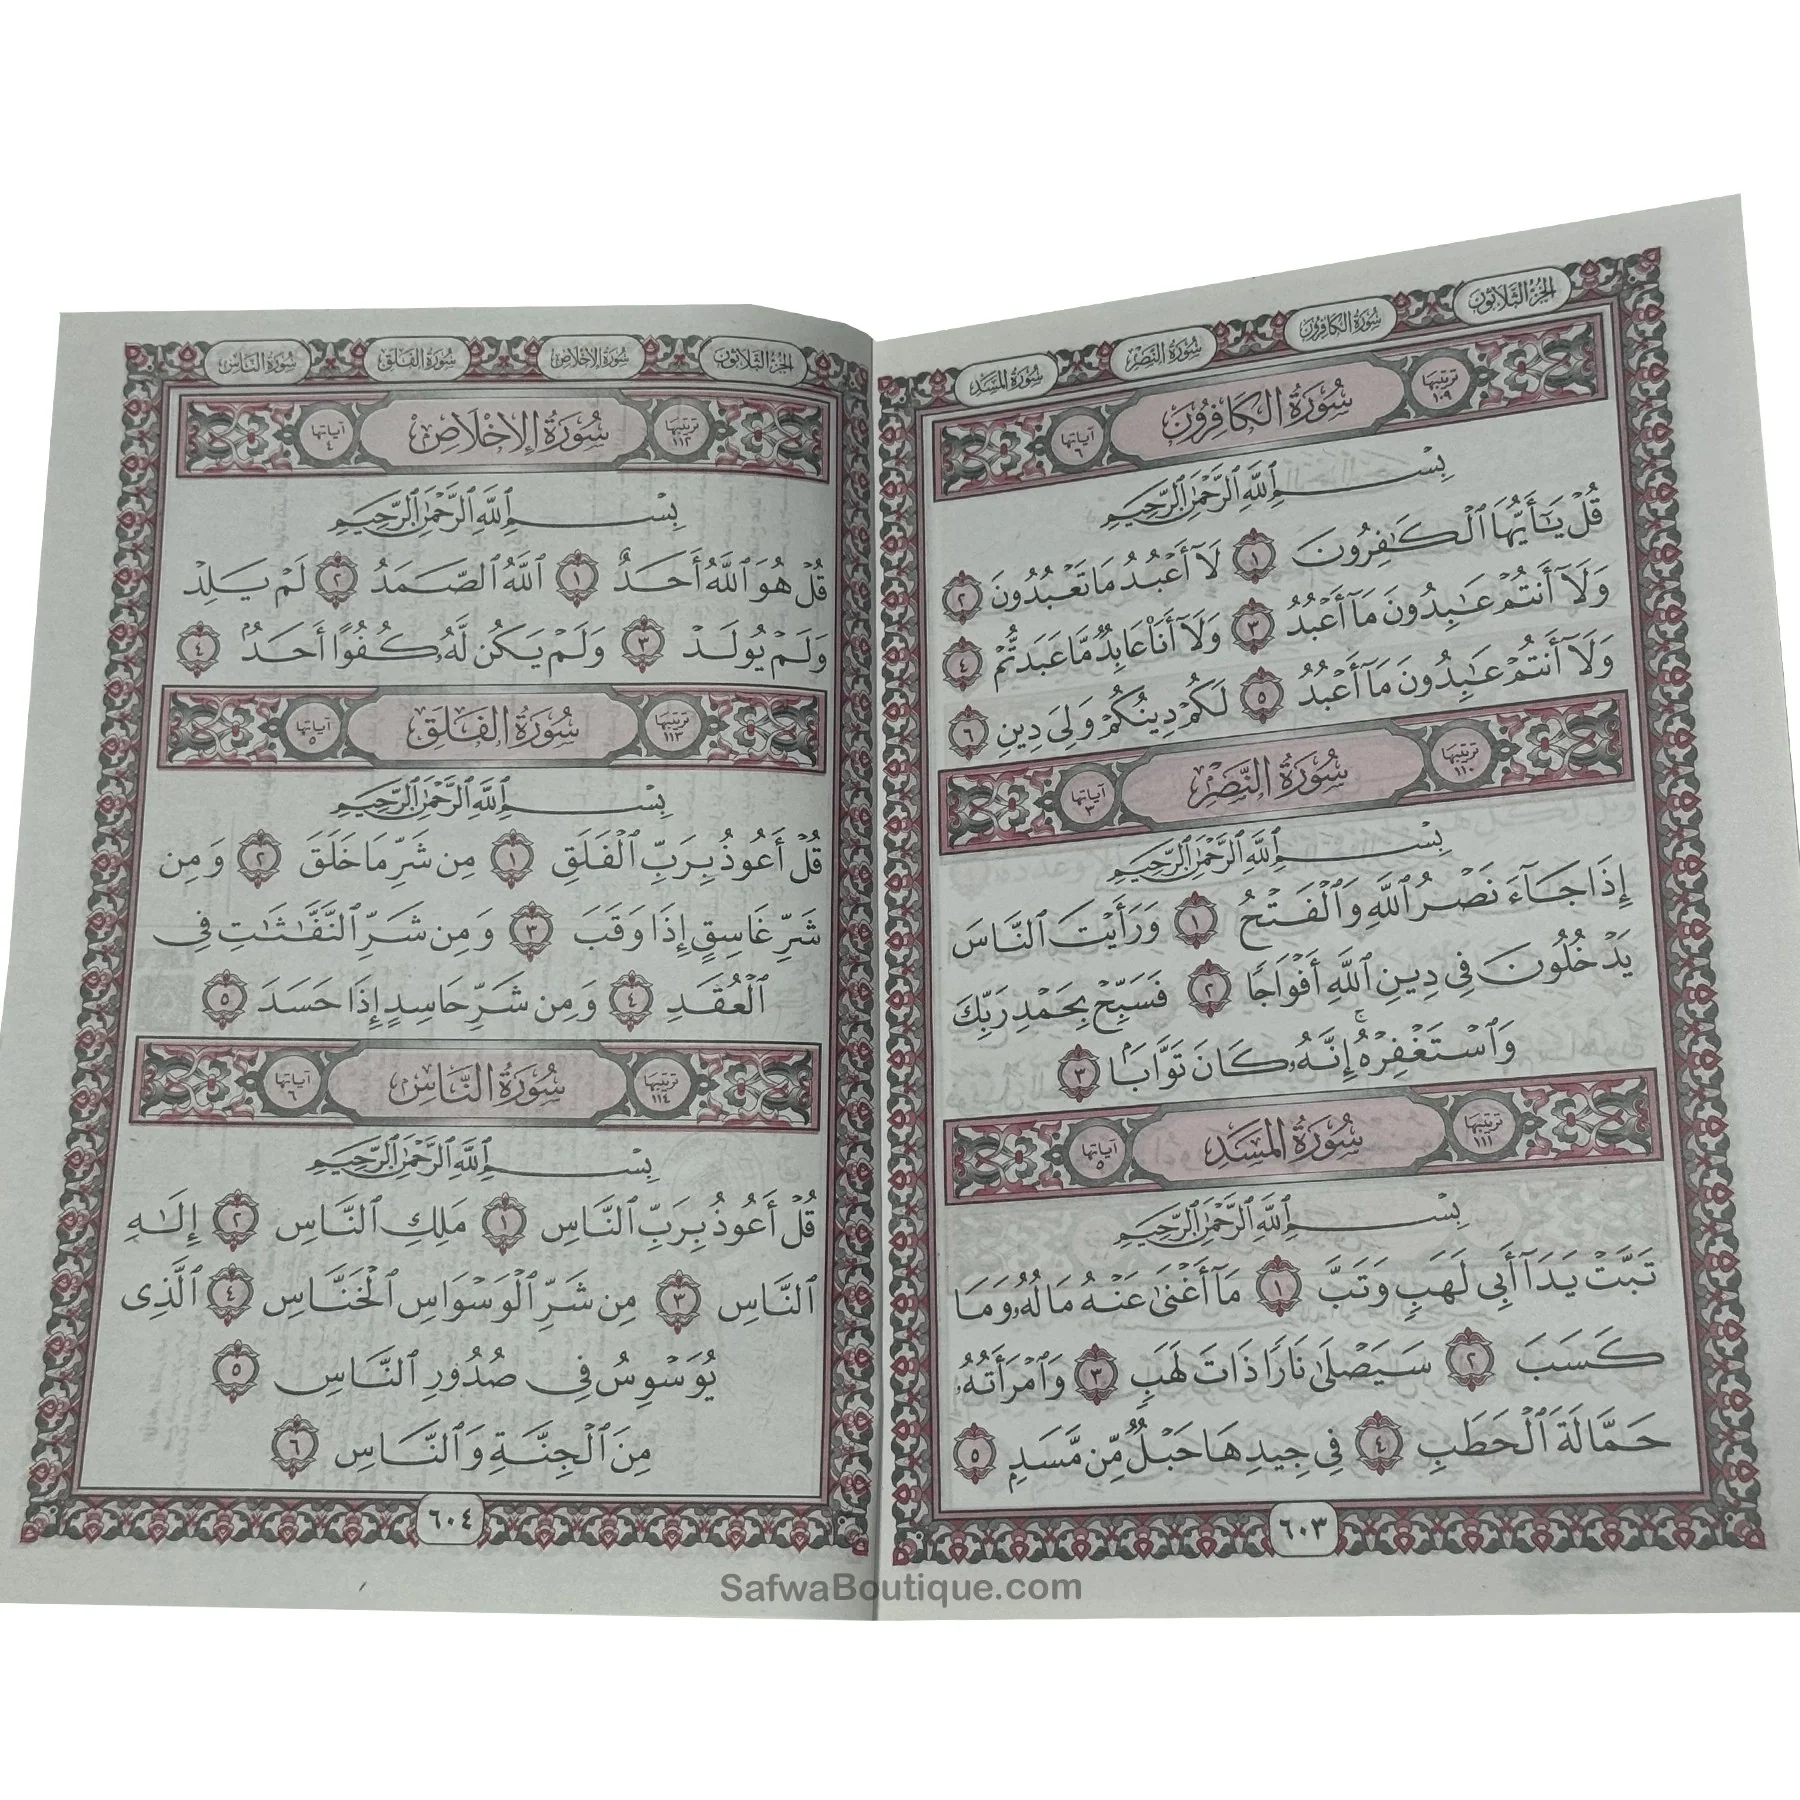 الجزء الثلاثون
سورة الكافرون
سورة النصر
سورة المسد
ترتيبها ١٠٩
سُورَةُ الكَافِرُونَ
آياتها ٦
بِسْمِ ٱللَّهِ ٱلرَّحْمَٰنِ ٱلرَّحِيمِ
قُلْ يَٰٓأَيُّهَا ٱلْكَٰفِرُونَ ١ لَآ أَعْبُدُ مَا تَعْبُدُونَ ٢
وَلَآ أَنتُمْ عَٰبِدُونَ مَآ أَعْبُدُ ٣ وَلَآ أَنَا۠ عَابِدٌ مَّا عَبَدتُّمْ ٤
وَلَآ أَنتُمْ عَٰبِدُونَ مَآ أَعْبُدُ ٥ لَكُمْ دِينُكُمْ وَلِىَ دِينِ ٦
ترتيبها ١١٠
سُورَةُ النَّصْرِ
آياتها ٣
بِسْمِ ٱللَّهِ ٱلرَّحْمَٰنِ ٱلرَّحِيمِ
إِذَا جَآءَ نَصْرُ ٱللَّهِ وَٱلْفَتْحُ ١ وَرَأَيْتَ ٱلنَّاسَ
يَدْخُلُونَ فِى دِينِ ٱللَّهِ أَفْوَاجًا ٢ فَسَبِّحْ بِحَمْدِ رَبِّكَ
وَٱسْتَغْفِرْهُ ۚ إِنَّهُۥ كَانَ تَوَّابًۢا ٣
ترتيبها ١١١
سُورَةُ المَسَدِ
آياتها ٥
بِسْمِ ٱللَّهِ ٱلرَّحْمَٰنِ ٱلرَّحِيمِ
تَبَّتْ يَدَآ أَبِى لَهَبٍ وَتَبَّ ١ مَآ أَغْنَىٰ عَنْهُ مَالُهُۥ وَمَا
كَسَبَ ٢ سَيَصْلَىٰ نَارًا ذَاتَ لَهَبٍ ٣ وَٱمْرَأَتُهُۥ
حَمَّالَةَ ٱلْحَطَبِ ٤ فِى جِيدِهَا حَبْلٌ مِّن مَّسَدٍۭ ٥
٦٠٣
الجزء الثلاثون
سورة الإخلاص
سورة الفلق
سورة الناس
ترتيبها ١١٢
سُورَةُ الإِخْلَاصِ
آياتها ٤
بِسْمِ ٱللَّهِ ٱلرَّحْمَٰنِ ٱلرَّحِيمِ
قُلْ هُوَ ٱللَّهُ أَحَدٌ ١ ٱللَّهُ ٱلصَّمَدُ ٢ لَمْ يَلِدْ
وَلَمْ يُولَدْ ٣ وَلَمْ يَكُن لَّهُۥ كُفُوًا أَحَدٌۢ ٤
ترتيبها ١١٣
سُورَةُ الفَلَقِ
آياتها ٥
بِسْمِ ٱللَّهِ ٱلرَّحْمَٰنِ ٱلرَّحِيمِ
قُلْ أَعُوذُ بِرَبِّ ٱلْفَلَقِ ١ مِن شَرِّ مَا خَلَقَ ٢ وَمِن
شَرِّ غَاسِقٍ إِذَا وَقَبَ ٣ وَمِن شَرِّ ٱلنَّفَّٰثَٰتِ فِى
ٱلْعُقَدِ ٤ وَمِن شَرِّ حَاسِدٍ إِذَا حَسَدَ ٥
ترتيبها ١١٤
سُورَةُ النَّاسِ
آياتها ٦
بِسْمِ ٱللَّهِ ٱلرَّحْمَٰنِ ٱلرَّحِيمِ
قُلْ أَعُوذُ بِرَبِّ ٱلنَّاسِ ١ مَلِكِ ٱلنَّاسِ ٢ إِلَٰهِ
ٱلنَّاسِ ٣ مِن شَرِّ ٱلْوَسْوَاسِ ٱلْخَنَّاسِ ٤ ٱلَّذِى
يُوَسْوِسُ فِى صُدُورِ ٱلنَّاسِ ٥
مِنَ ٱلْجِنَّةِ وَٱلنَّاسِ ٦
٦٠٤
SafwaBoutique.com